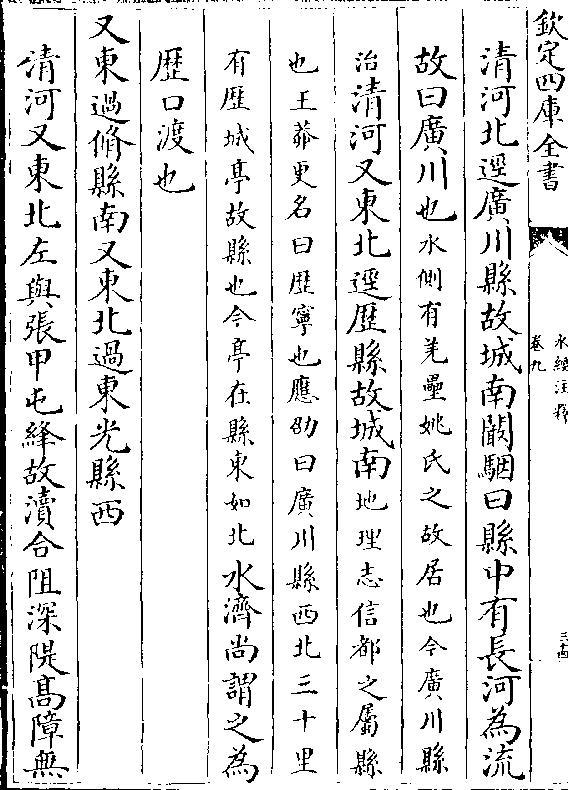 欽定四庫全書
水經注釋
卷九
三十四
清河北逕廣川縣故城南闞駰曰縣中有長河為流
故曰廣川也水側有羌壘姚氏之故居也今廣川縣
治清河又東北逕歴縣故城南地理志信都之屬縣
也王莽更名曰歴寧也應劭曰廣川縣西北三十里
有歴城亭故縣也今亭在縣東如北水濟尚謂之為
歴口渡也
又東過脩縣南又東北過東光縣西
清河又東北左與張甲屯絳故瀆合阻深隄髙障無